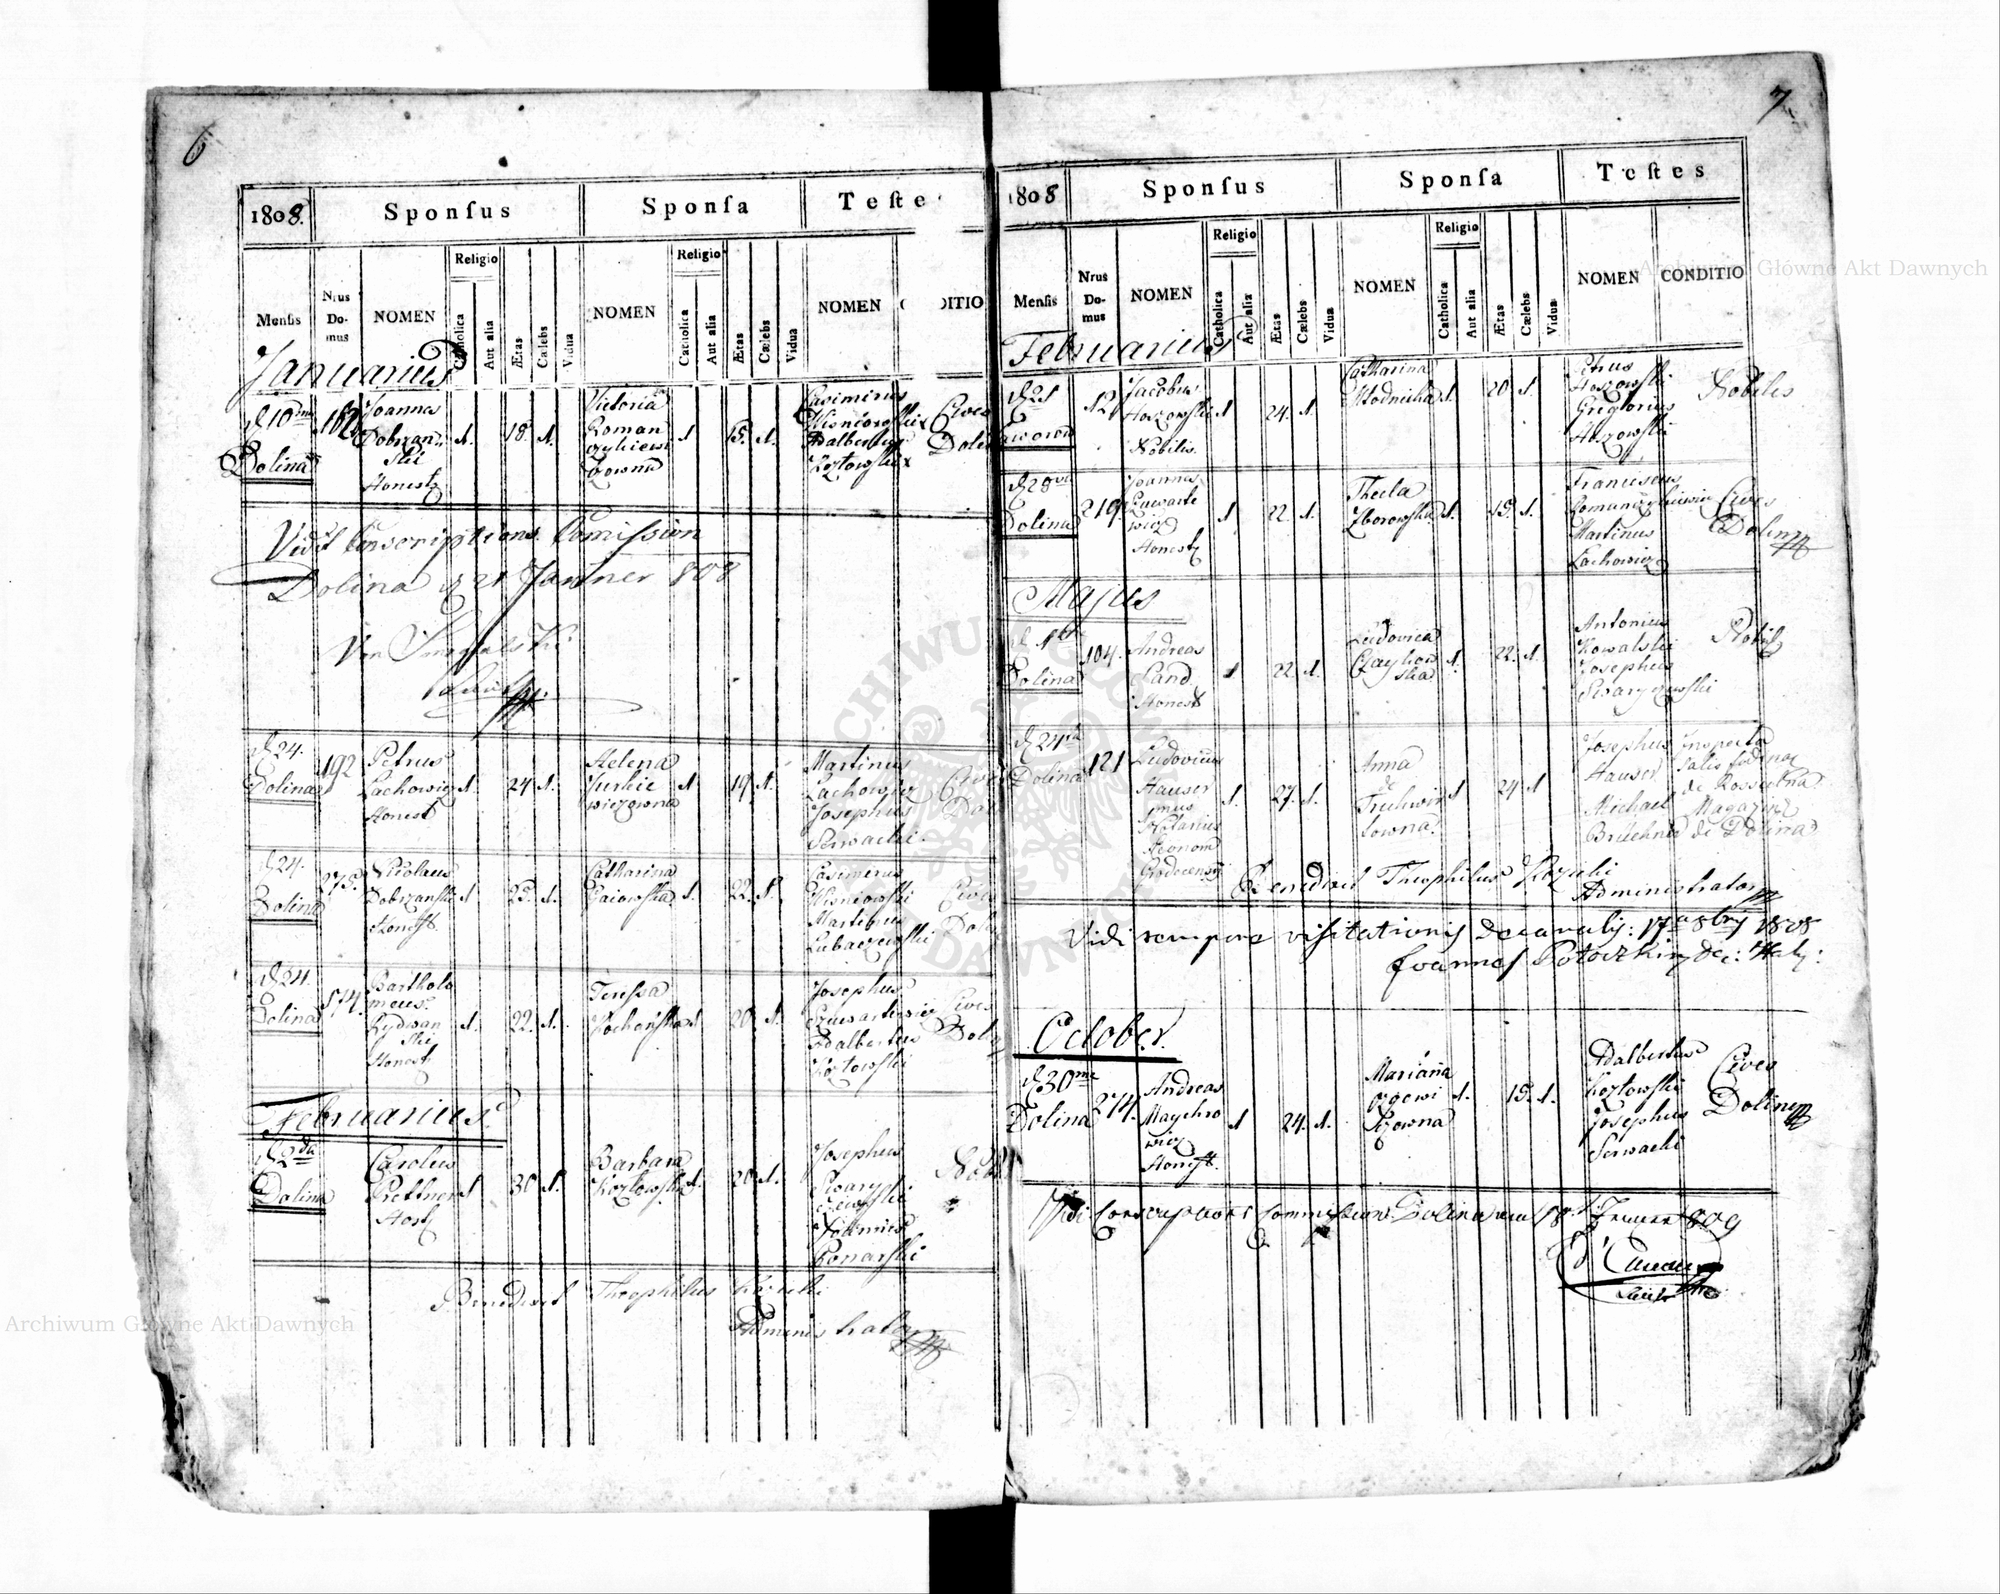 6
1808.
Sponſus
Sponſa
Teſte
Menſis
Nrus Do-mus
NOMEN
Religio
Catholica
Aut alia
Ætas
Cælebs
Vidua
NOMEN
Religio
Catholica
Aut alia
Ætas
Cælebs
Vidua
NOMEN
DITIO
Januarius
d 10ma
Dolina
182
Joannes
Dobrzan
ski
Honest
1.
18.
1.
Victoria
Roman
czykiewi
czowna
1
15.
1.
Casimirus
Wisniowski x
Adalbertus
Kozłowski x
Cives
Dolin
Vidit Conscriptions Comission
Dolina d 21 Janner 808
d 24.
Dolina
192
Petrus
Lachowicz
Honest
1.
24
1.
Helena
Jurkie
wiczowna
1
19.
1.
Martinus
Lachowicz
Josephus
Serwacki.
Cives
Dol
d 24.
Dolina
275.
Nicolaus
Dobrzanski
Honest.
1
25.
1.
Catharina
Gaiowska
1.
22.
1.
Casimirus
Wisniowski
Martinus
Lubaczewski
Cives
Dol
d 24.
Dolina
174.
Bartholo
meus
Lydwan
ski
Honest
1.
22.
1.
Teressa
Kochańska
1
20.
1.
Josephus
Adalbertus
Kozłowski
Cives
Dolin
Februarius
d 2da
Dolina
Carolus
Prettner
Host
1
30
1.
Barbara
Kozłowska
1.
20
1.
Josephus
Swary
czewski
Joannes
Konarski
Nobil
Benedict Theophilus Kozicki
Administrator
7
1808
Sponſus
Sponſa
Teſtes
Menſis
Nrus Do-mus
NOMEN
Religio
Catholica
Aut alia
Ætas
Cælebs
Vidua
NOMEN
Religio
Catholica
Aut alia
Ætas
Cælebs
Vidua
NOMEN
CONDITIO
Februarius
d 21
12
Jacobus
Hoszowski
Nobilis.
1
24.
1.
Catharina
1.
20
1.
Petrus
Hoszowski
Gregorius
Hoszowski
Nobiles
d 28va
Dolina
219
Joannes
Ezewarte
wicz
Honest
1.
22.
1.
Thecla
Zborowska
1.
19.
1.
Franciscus
Romanczykiewicz
Martinus
Lachowicz
Cives
Dolin
Majus
d. 1ta
Dolina
104.
Andreas
Land.
Honest
1
22.
1.
Ludovica
Czaykow
ska.
1.
22.
1.
Antonius
Kowalski
Josephus
Swaryczewski
Nobil
d 24ta
Dolina
121
Ludovicus
Hauser
Notarius
1.
27.
1.
Anna
de
1
24
1
Josephus
Hauser
Michael
Inspector
Salis fodinae
de Rossulna
Magazin
de Dolina
Benedict Theophilus Kozicki
Administrator
Vidi tempore visitationis decanalis: 17a 8bris 1808
Joannes Potoczki
October.
d 30ma
Dolina
274.
Andreas
Maychro
wicz
Honest.
1
24.
1.
Marianna
1.
15.
1.
Adalbertus
Kozłowski
Josephus
Serwacki
Cives
Dolin
Vidi Conscriptions Commission. Dolina am 18t Jenner 809
Archiwum Główne Akt Dawnych
Archiwum Główne Akt Dawnych